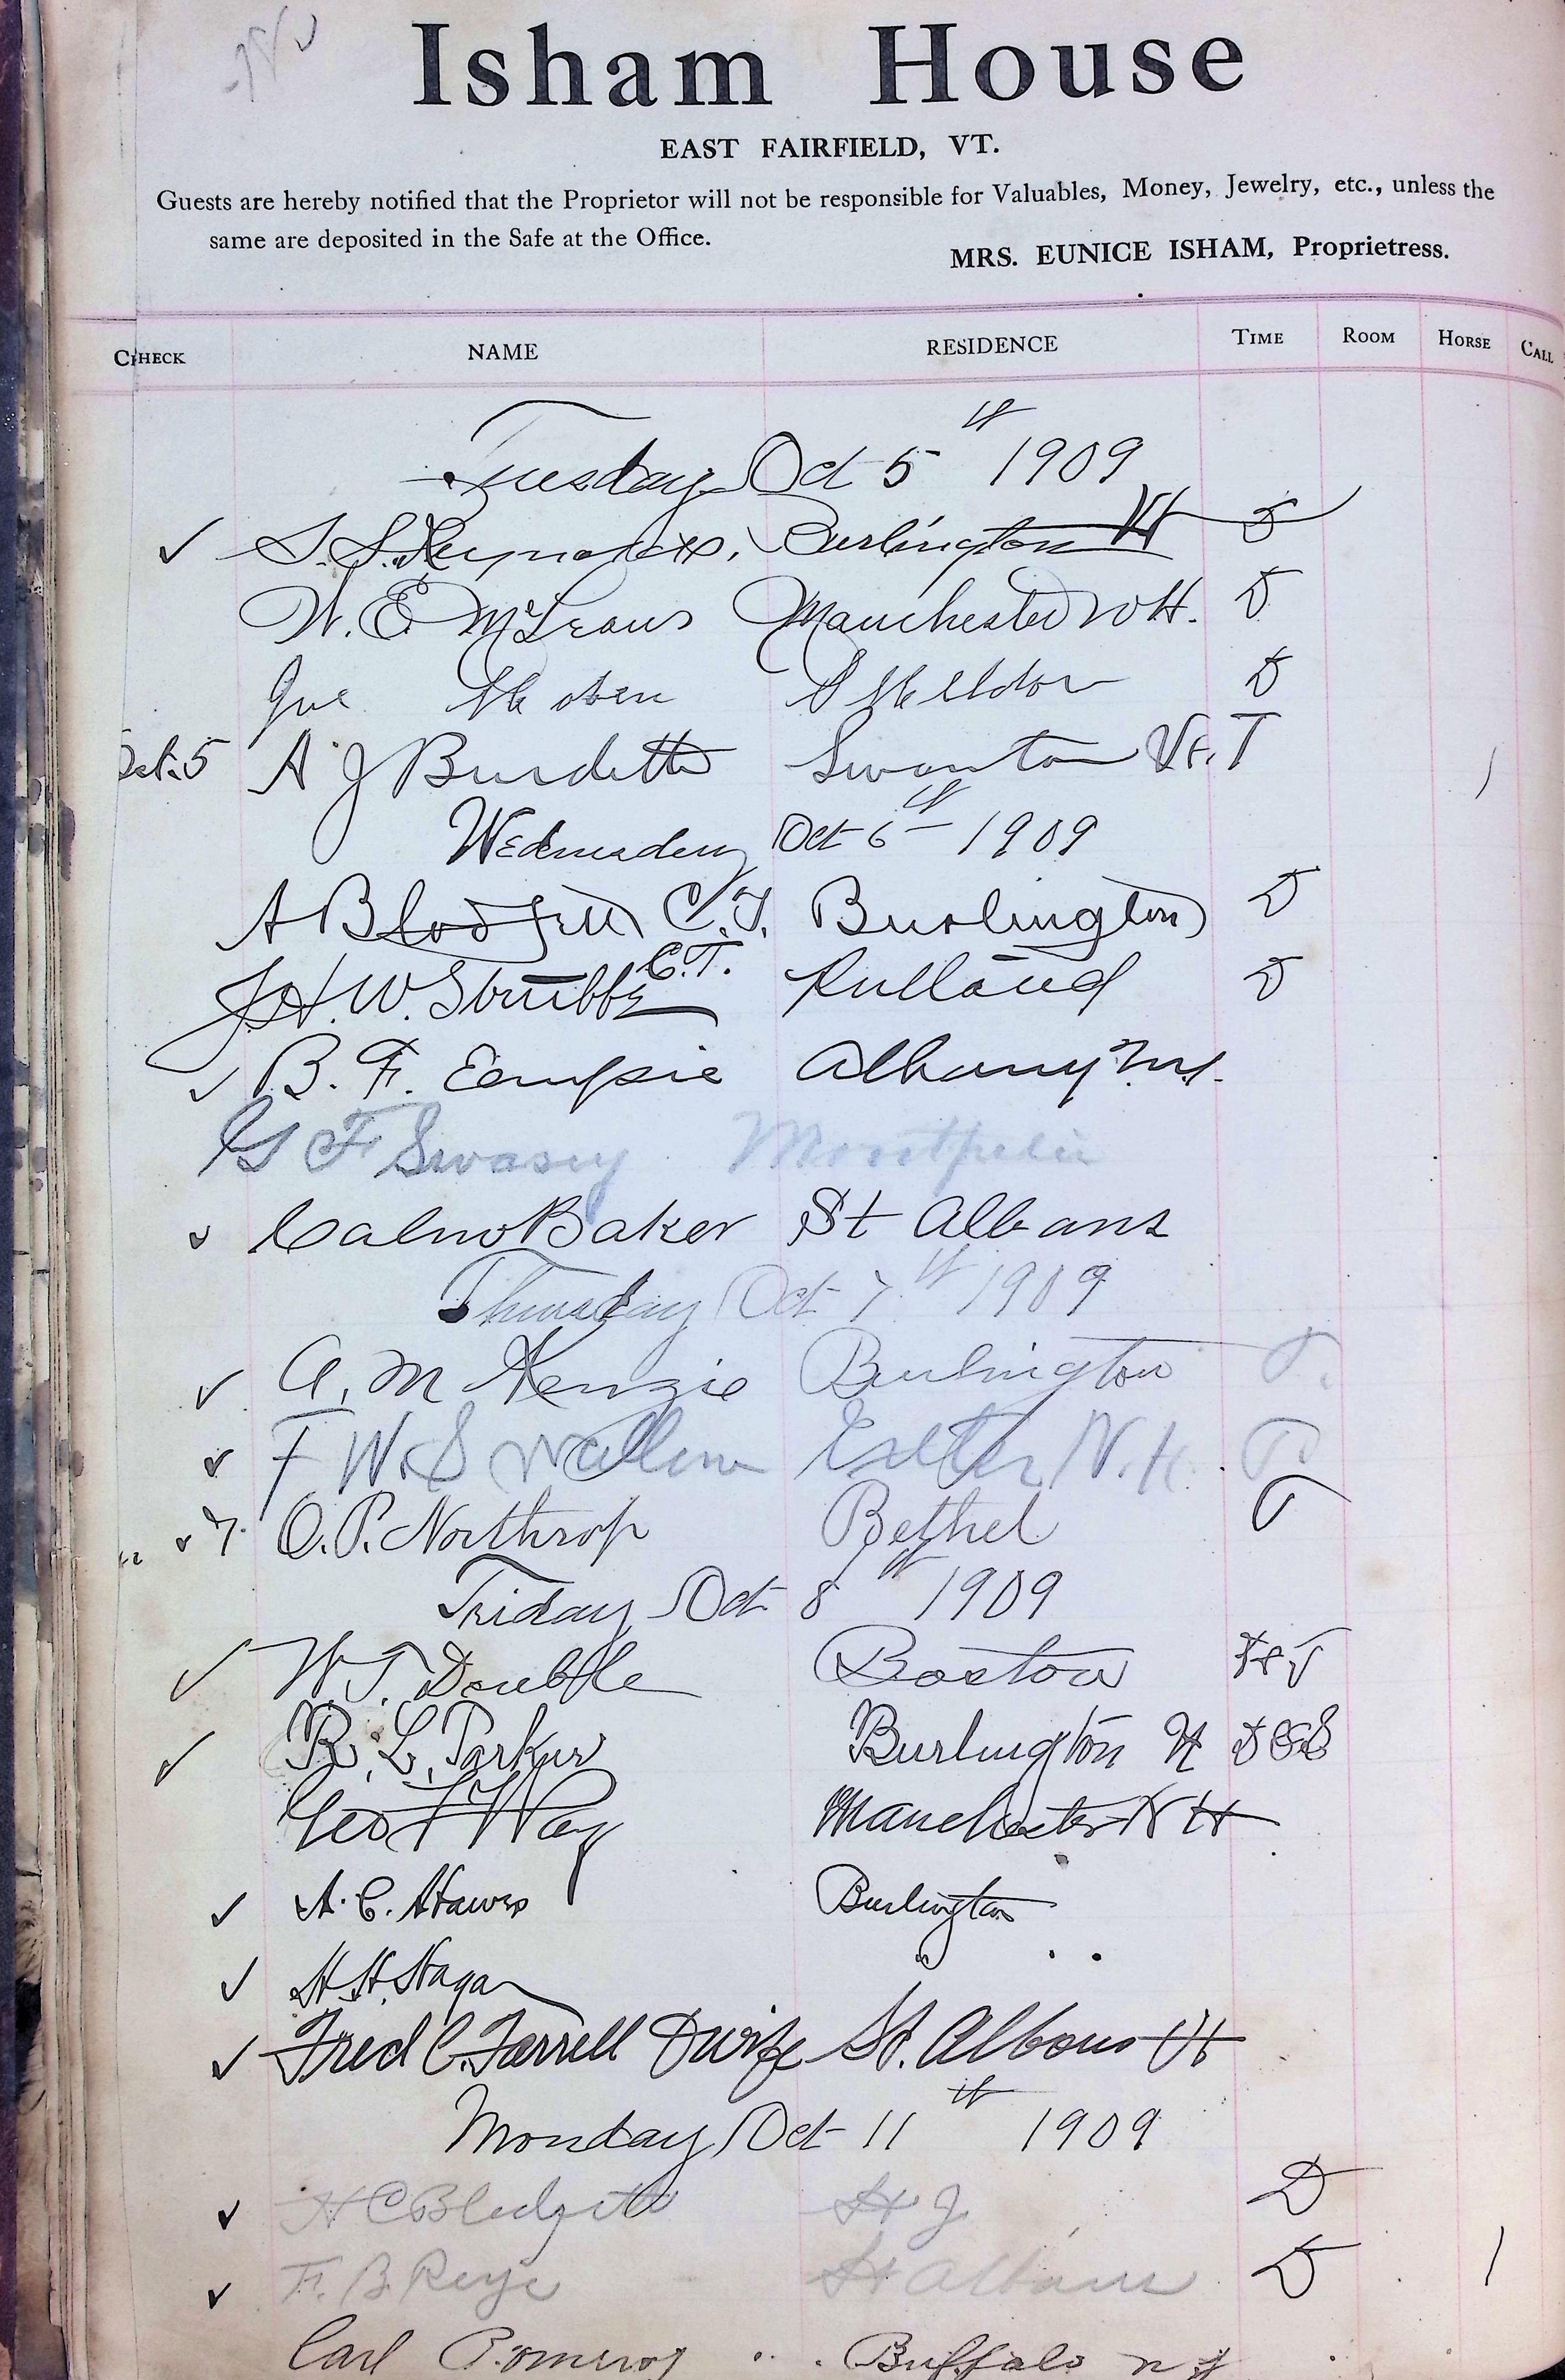 Isham House
EAST FAIRFIELD, VT.
Guests are hereby notified that the Proprietor will not be responsible for Valuables, Money, Jewelry, etc., unless the
same are deposited in the Safe at the Office.
MRS. EUNICE ISHAM, Proprietress.
CHECK NAME RESIDENCE TIME ROOM HORSE CALL
Tuesday Oct 5th 1909
S. S. Reynolds, Burlington Vt D
W. E. Manchester N H. D
Sheldon D
Oct. 5 A J Burdett Swanton Vt. T 1
Wednesday Oct 6th 1909
A Blodgett C. T. Burlington D
J. H. W. Stribbe C.T. Rutland D
B. F. Empie Albany N.Y.
G F Swasey Montpelier
Baker St Albans
Thursday Oct 7th 1909
A. M Kenzie Burlington T.
F W. S Exeter N. H. T
" 7. O. P. Northrop Bethel T
Friday Oct 8th 1909
W. T. Double Boston
R. L. Parker Burlington Vt
Geo F Way Manchester N H
A. C. Hawes Burlington
H. H. Hagar " "
Fred C. Farrell & wife St. Albans Vt
Monday Oct 11th 1909
H C Blodgett St J. D
F. B. St Albans D 1
Carl Pomeroy Buffalo N Y